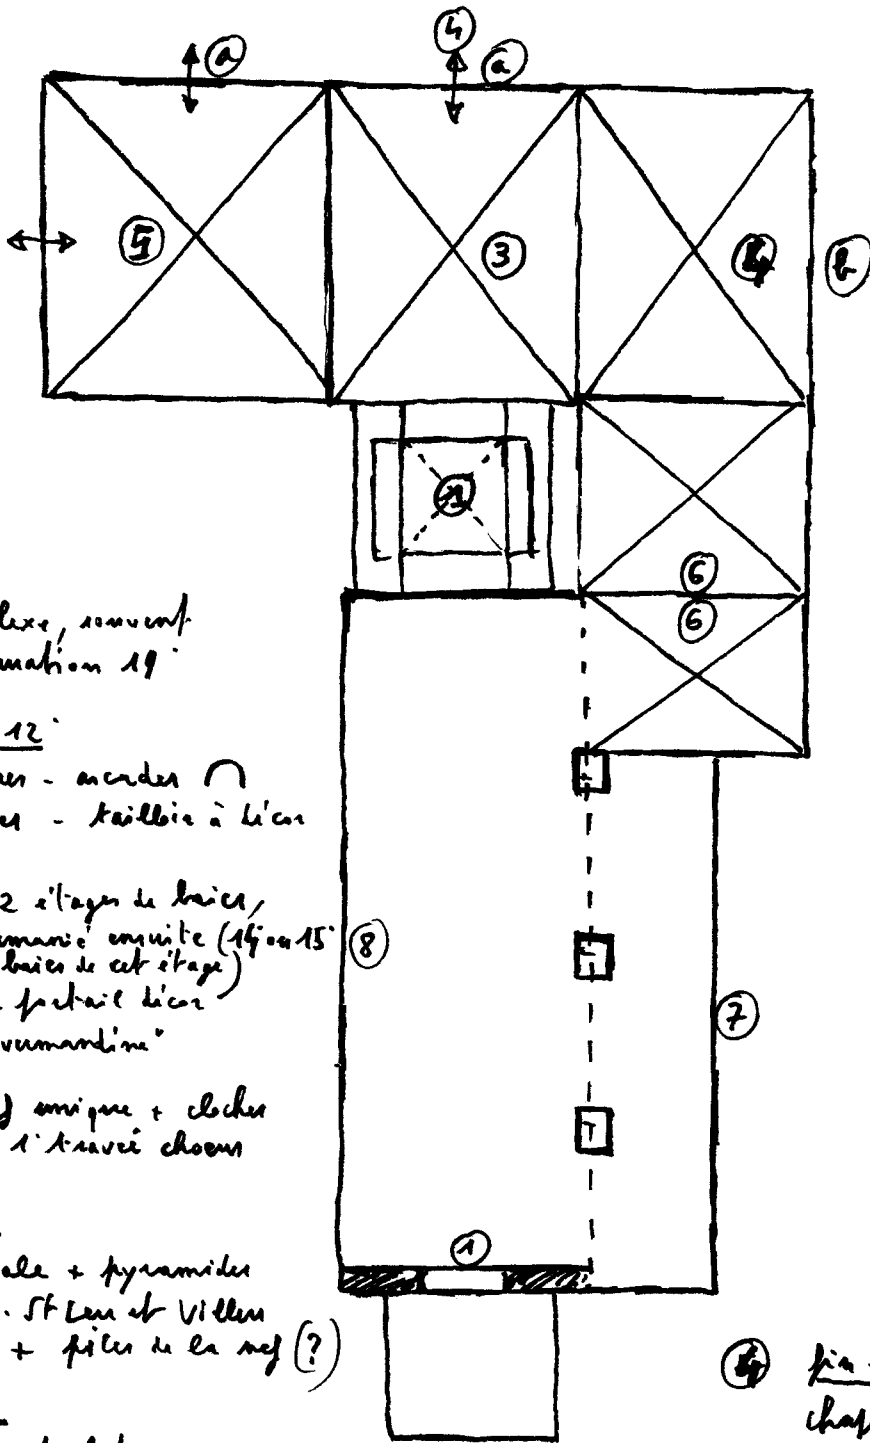 4
a
a
5
3
4
b
1
6
6
lexe, souvent
mation 19°
12°
res - arcades
es - tailloir à décor
2 étages de baies,
emanié ensuite (14 ou 15°
baies de cet étage)
portail décor
normandine"
8
7
f unique + clocher
1° travée choeur
1
ale + pyramides
. St Leu et Villers
+ piles de la nef (?)
4
fin
chap